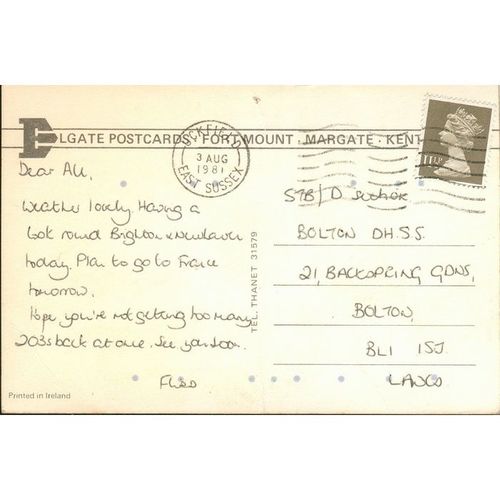 ELGATE POSTCARDS · FORT MOUNT · MARGATE · KENT
UCKFIELD
3 AUG
1981
EAST SUSSEX
11½P
Dear All,
Weather lovely. Having a
look round Brighton & Newhaven
today. Plan to go to France
tomorrow.
Hope you're not getting too many
203s back at one. See you soon.
TEL. THANET 31579
STB/D section
BOLTON DHSS.
21, BACKSPRING GDNS,
BOLTON,
BL1 1SJ.
LANCS
Printed in Ireland